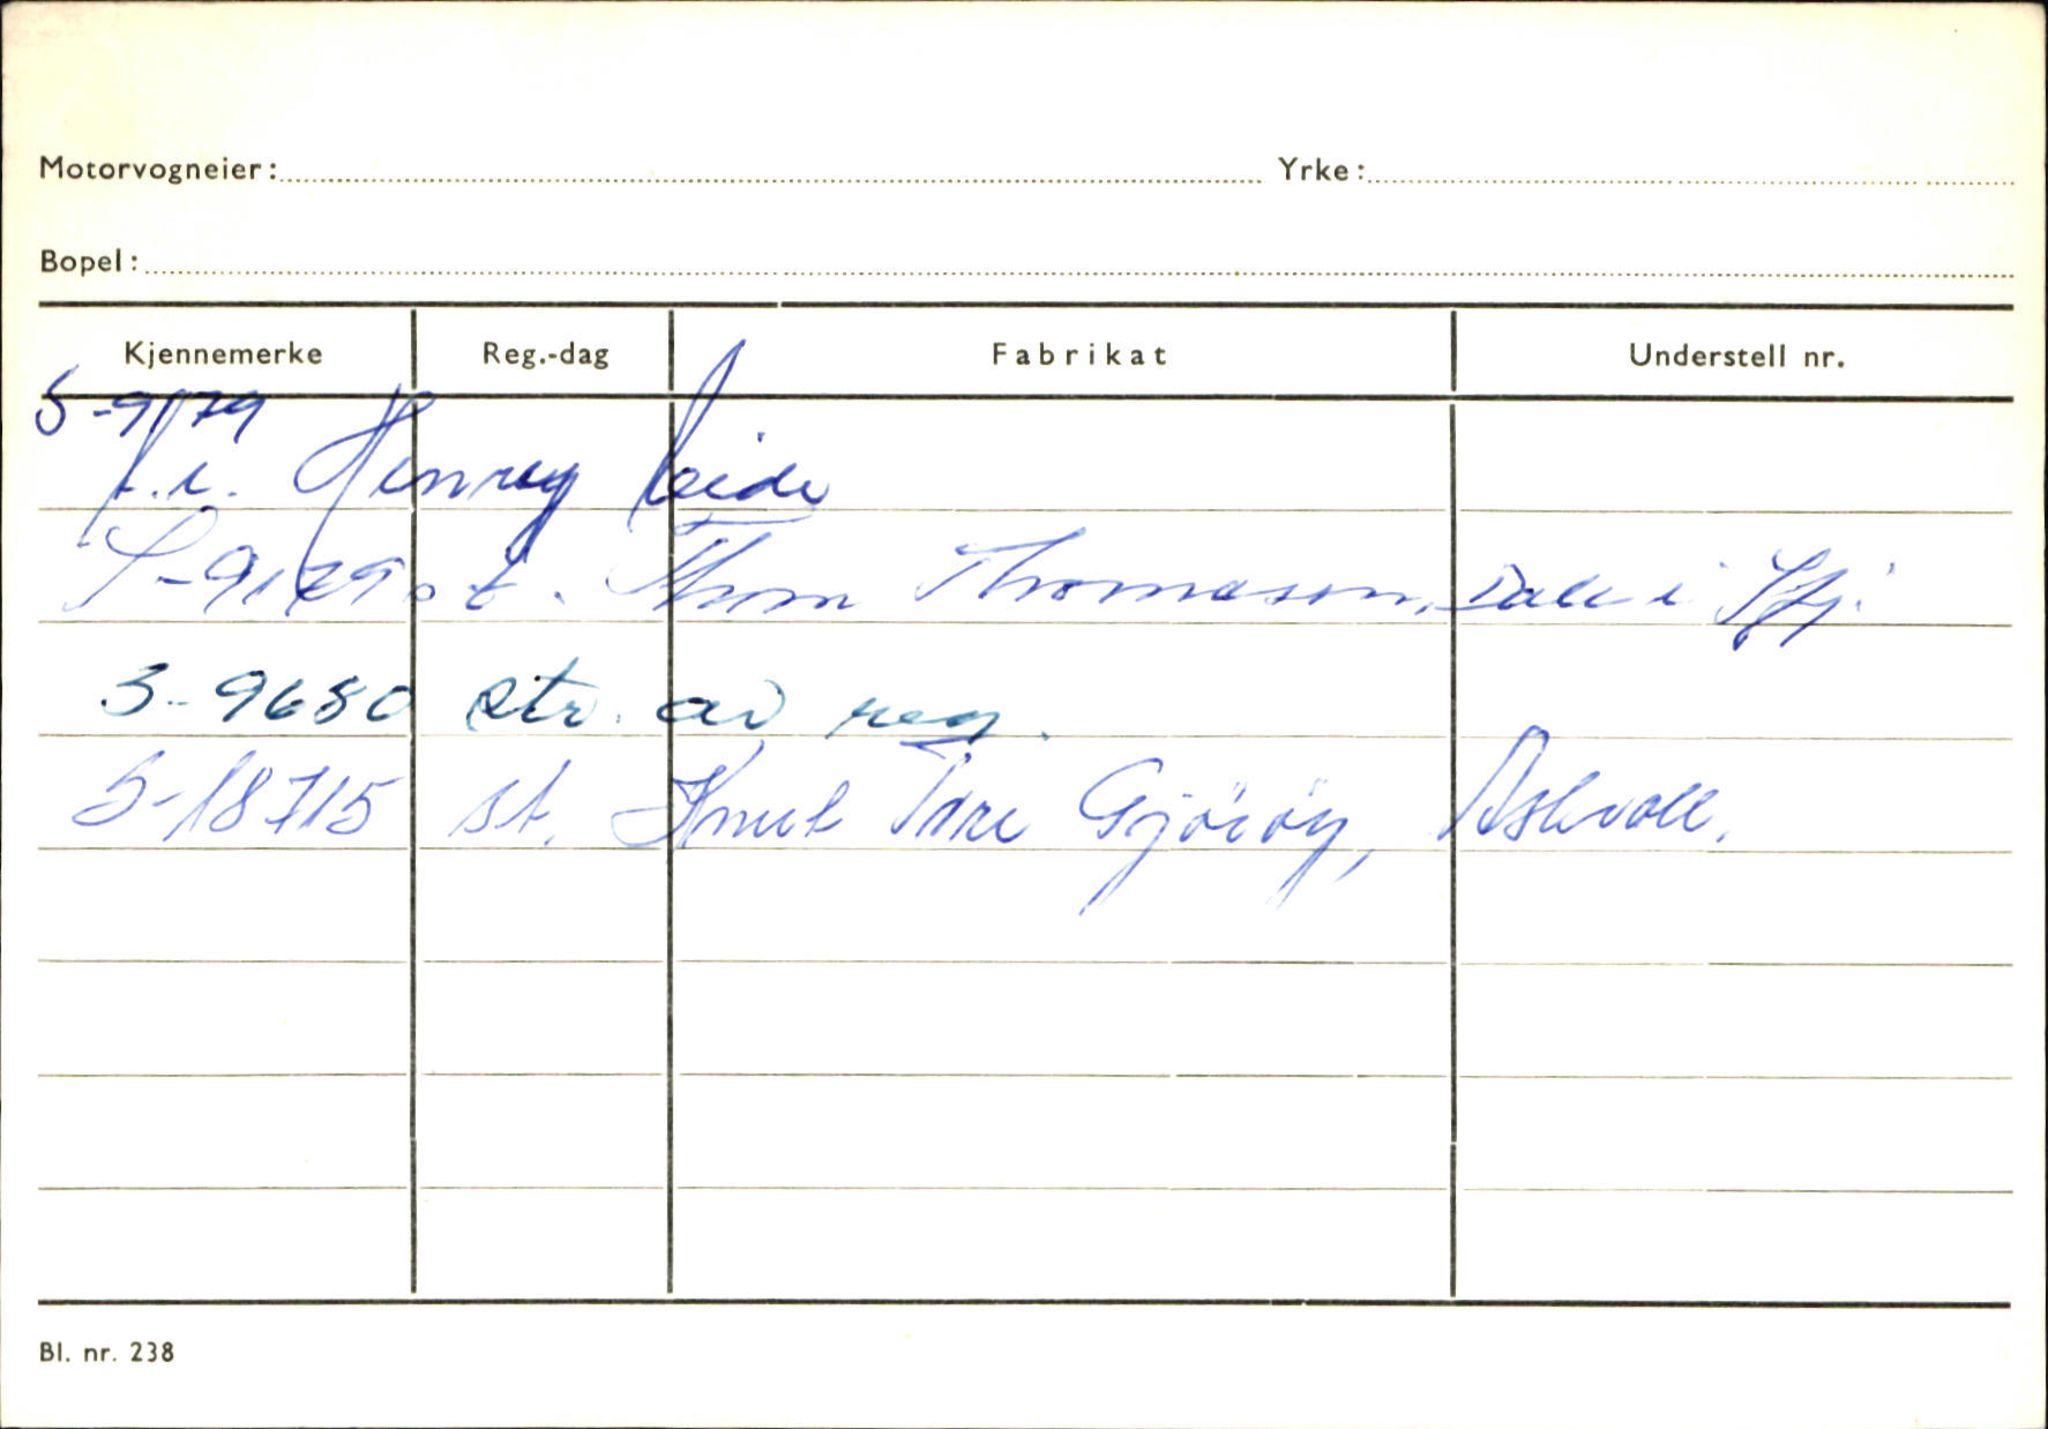 Motorvogneier: Yrke:
Bopel:
Kjennemerke Reg.-dag Fabrikat Understell nr.
S-9179
Henry Leide
S-9179 Thom Thomason, Dale i Sfj.
S-9680 str. av reg.
S-18715 st. Knut Tore Gjöröy, Askvoll.
Bl. nr. 238